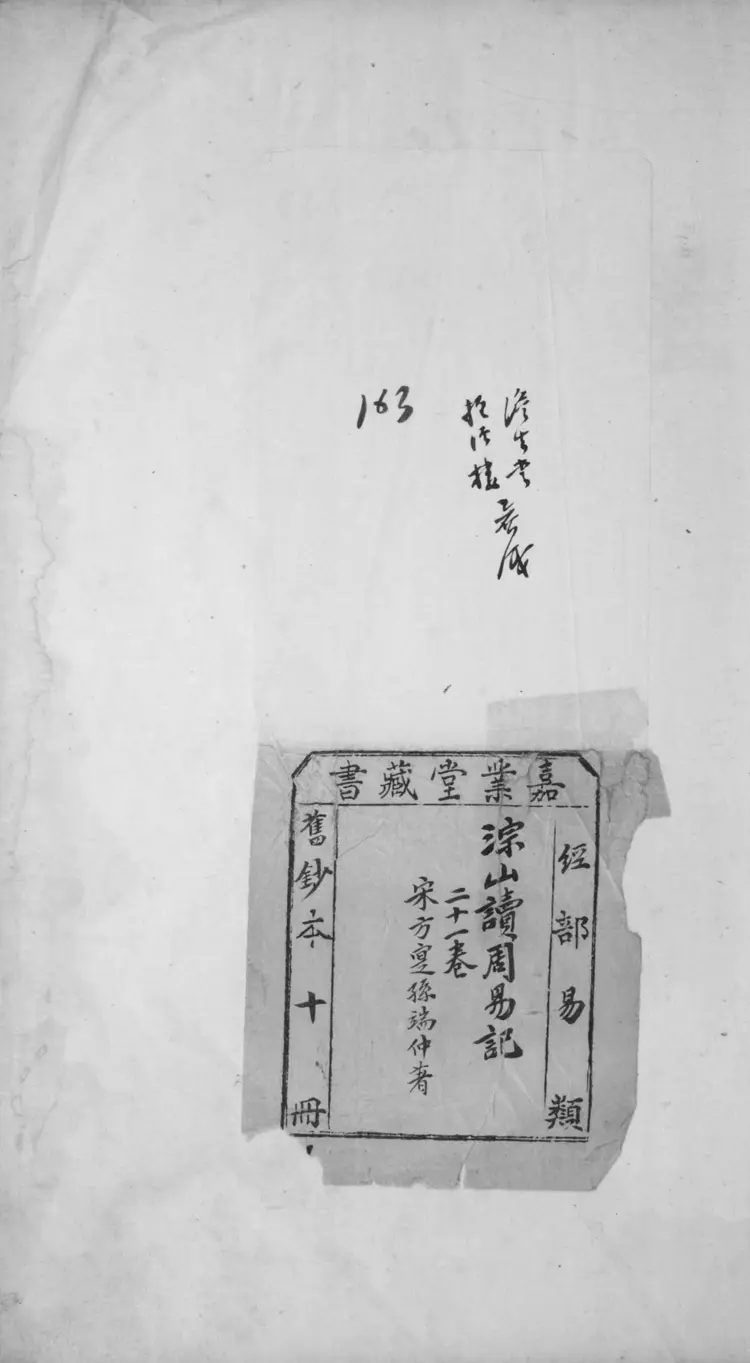 澹生堂
抱經樓
163
嘉業堂藏書
經部易類
淙山讀周易記
二十一卷
宋方寔孫端仲著
舊鈔本十冊